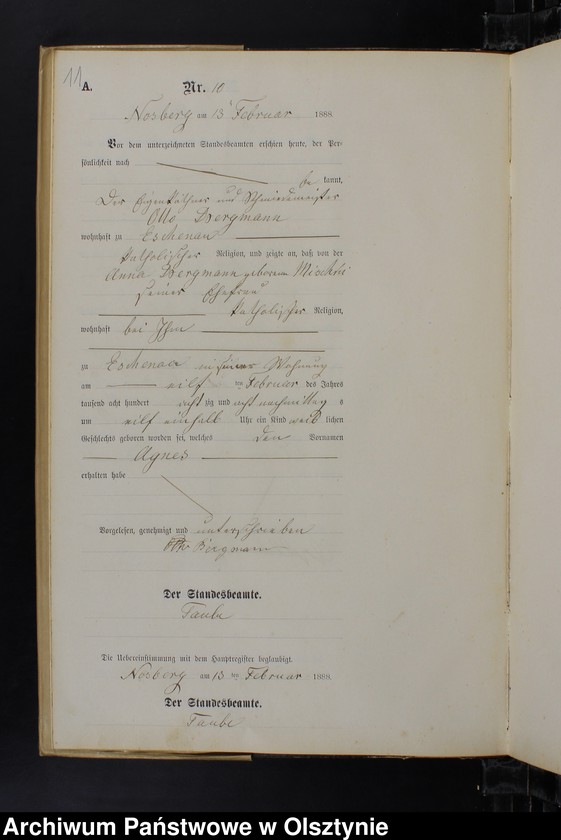 11
A.
Nr. 10
Nosberg am 13 Februar 1888.
Vor dem unterzeichneten Standesbeamten erschien heute, der Per-
sönlichkeit nach
be kannt,
Der Eigenkäthner und Schmiedemeister
Otto Bergmann
wohnhaft zu Eschenau
katholischer Religion, und zeigte an, daß von der
Anna Bergmann geborene
seiner Ehefrau
katholischer Religion,
wohnhaft bei Ihm
zu Eschenau in seiner Wohnung
am eilf ten Februar des Jahres
tausend acht hundert acht zig und acht nachmittag s
um eilf einhalb Uhr ein Kind weib lichen
Geschlechts geboren worden sei, welches den Vornamen
Agnes
erhalten habe
Vorgelesen, genehmigt und unterschrieben
Otto Bergmann
Der Standesbeamte.
Taube
Die Uebereinstimmung mit dem Hauptregister beglaubigt.
Nosberg am 13 ten Februar 1888.
Der Standesbeamte.
Taube
Archiwum Państwowe w Olsztynie